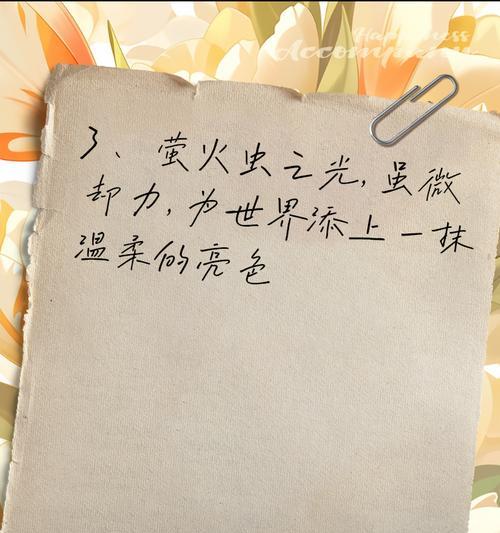 Happiness
Accompany
3、萤火虫之光,虽微
却力,为世界添上一抹
温柔的亮色